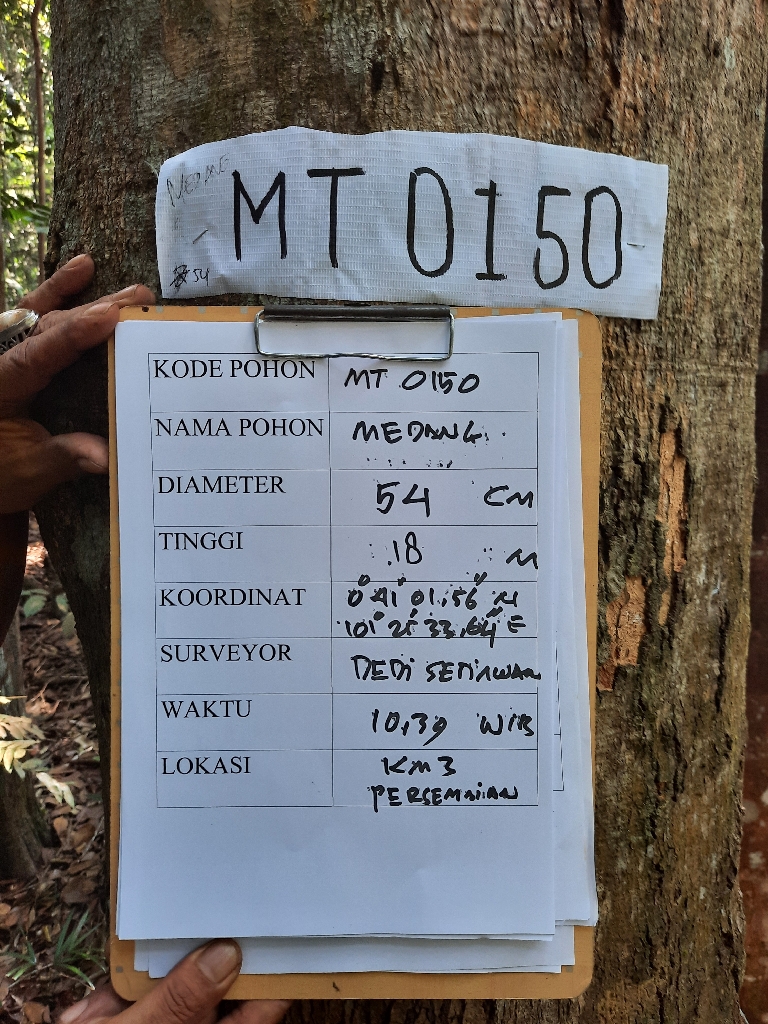 MEDANG
54
MT 0150
KODE POHON MT 0150
NAMA POHON MEDANG
DIAMETER 54 CM
TINGGI 18 M
KOORDINAT 0° 41' 01,56" N
101° 21' 33,64" E
SURVEYOR DEDI SETIAWAN
WAKTU 10,39 WIB
LOKASI KM 3
PERSEMAIAN